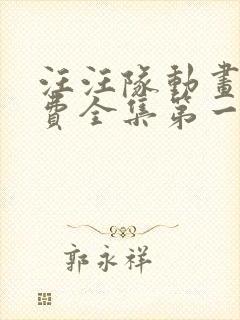 汪汪隊動畫
費全集第一
郭永祥